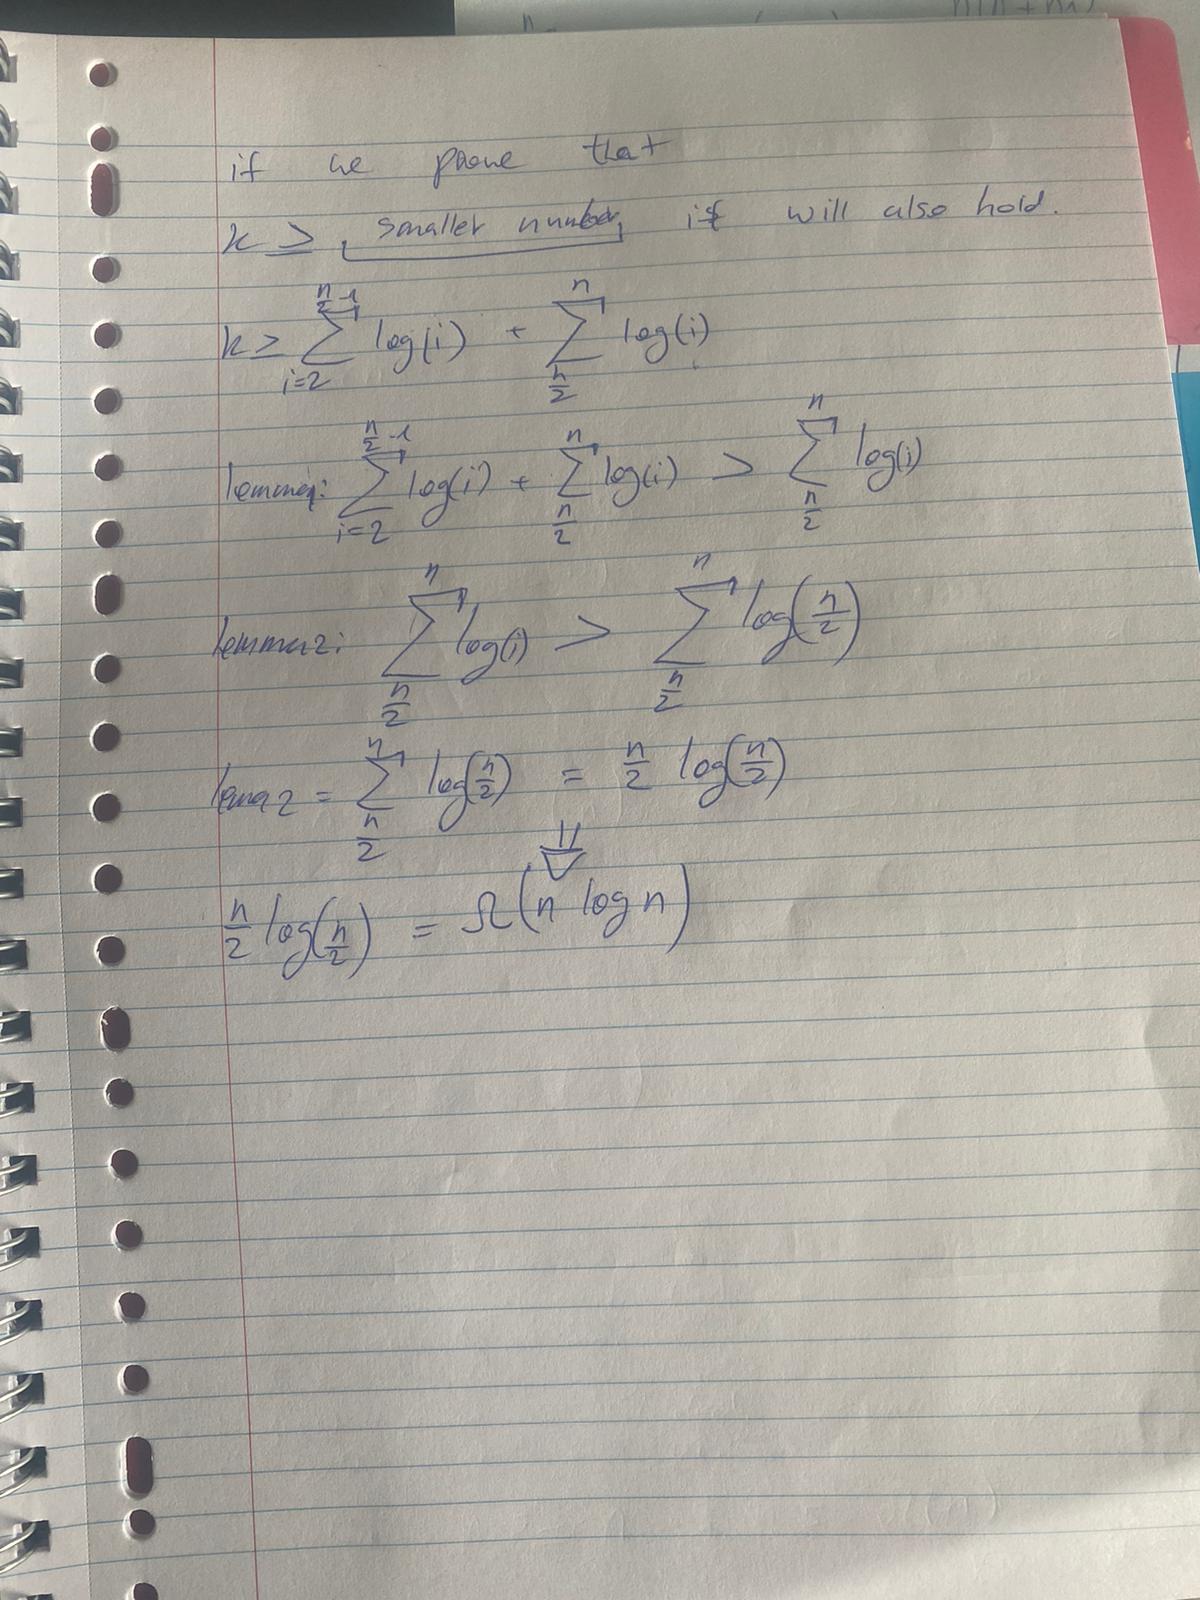 if we prove that
k ≥ smaller number, it will also hold.
k ≥ \sum_{i=2}^{\frac{n}{2}-1} log(i) + \sum_{\frac{n}{2}}^{n} log(i)
lemma1: \sum_{i=2}^{\frac{n}{2}-1} log(i) + \sum_{\frac{n}{2}}^{n} log(i) > \sum_{\frac{n}{2}}^{n} log(i)
lemma2: \sum_{\frac{n}{2}}^{n} log(i) > \sum_{\frac{n}{2}}^{n} log(\frac{n}{2})
lema2 = \sum_{\frac{n}{2}}^{n} log(\frac{n}{2}) = \frac{n}{2} log(\frac{n}{2})
⇓
\frac{n}{2} log(\frac{n}{2}) = Ω(n log n)